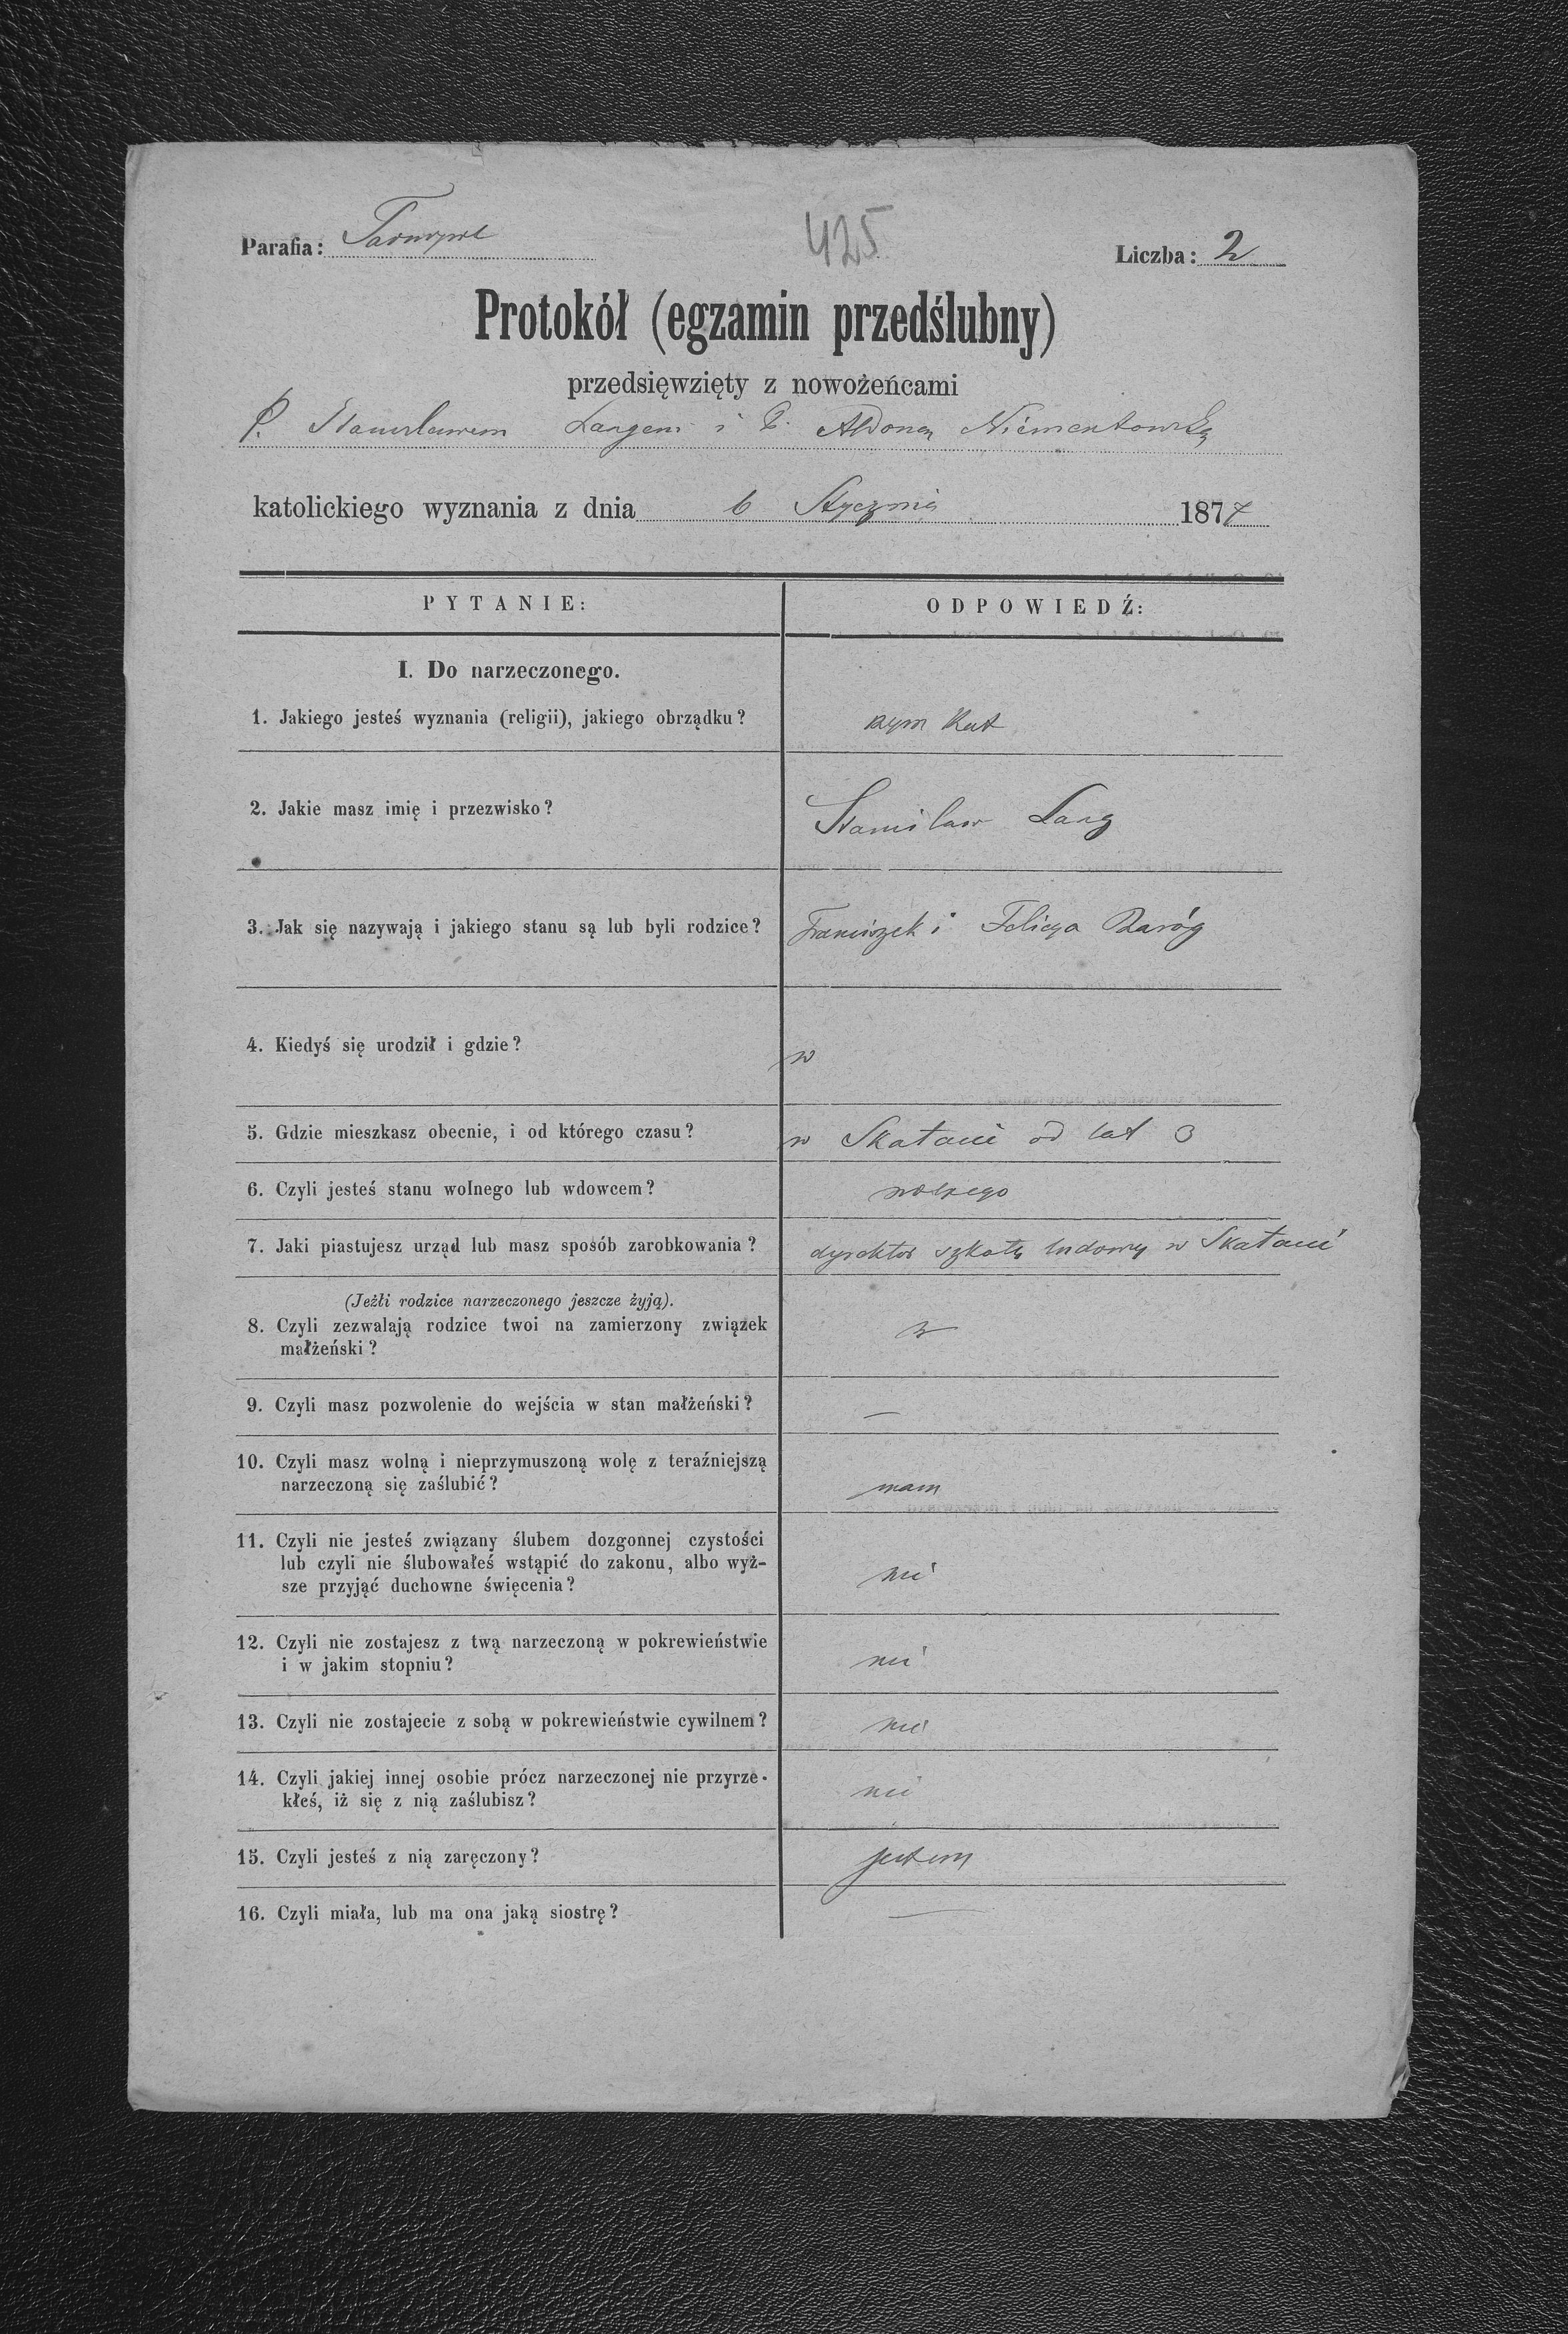 Parafia: Tarnopol
425
Liczba: 2
Protokół (egzamin przedślubny)
przedsięwzięty z nowożeńcami
P. Stanisławem Langem i P. Aldoną Niementowską
katolickiego wyznania z dnia 6 Stycznia 1877
PYTANIE:
ODPOWIEDŹ:
I. Do narzeczonego.
1. Jakiego jesteś wyznania (religii), jakiego obrządku?
rzym Kat
2. Jakie masz imię i przezwisko?
Stanisław Lang
3. Jak się nazywają i jakiego stanu są lub byli rodzice?
Franciszek i Felicya Raróg
4. Kiedyś się urodził i gdzie?
w
5. Gdzie mieszkasz obecnie, i od którego czasu?
w Skałacie od lat 3
6. Czyli jesteś stanu wolnego lub wdowcem?
wolnego
7. Jaki piastujesz urząd lub masz sposób zarobkowania?
dyrektor szkoły ludowej w Skałacie
(Jeżłi rodzice narzeczonego jeszcze żyją).
8. Czyli zezwalają rodzice twoi na zamierzony związek
małżeński?
9. Czyli masz pozwolenie do wejścia w stan małżeński?
—
10. Czyli masz wolną i nieprzymuszoną wolę z teraźniejszą
narzeczoną się zaślubić?
mam
11. Czyli nie jesteś związany ślubem dozgonnej czystości
lub czyli nie ślubowałeś wstąpić do zakonu, albo wyż-
sze przyjąć duchowne święcenia?
nie
12. Czyli nie zostajesz z twą narzeczoną w pokrewieństwie
i w jakim stopniu?
nie
13. Czyli nie zostajecie z sobą w pokrewieństwie cywilnem?
nie
14. Czyli jakiej innej osobie prócz narzeczonej nie przyrze-
kłeś, iż się z nią zaślubisz?
nie
15. Czyli jesteś z nią zaręczony?
jestem
16. Czyli miała, lub ma ona jaką siostrę?
—